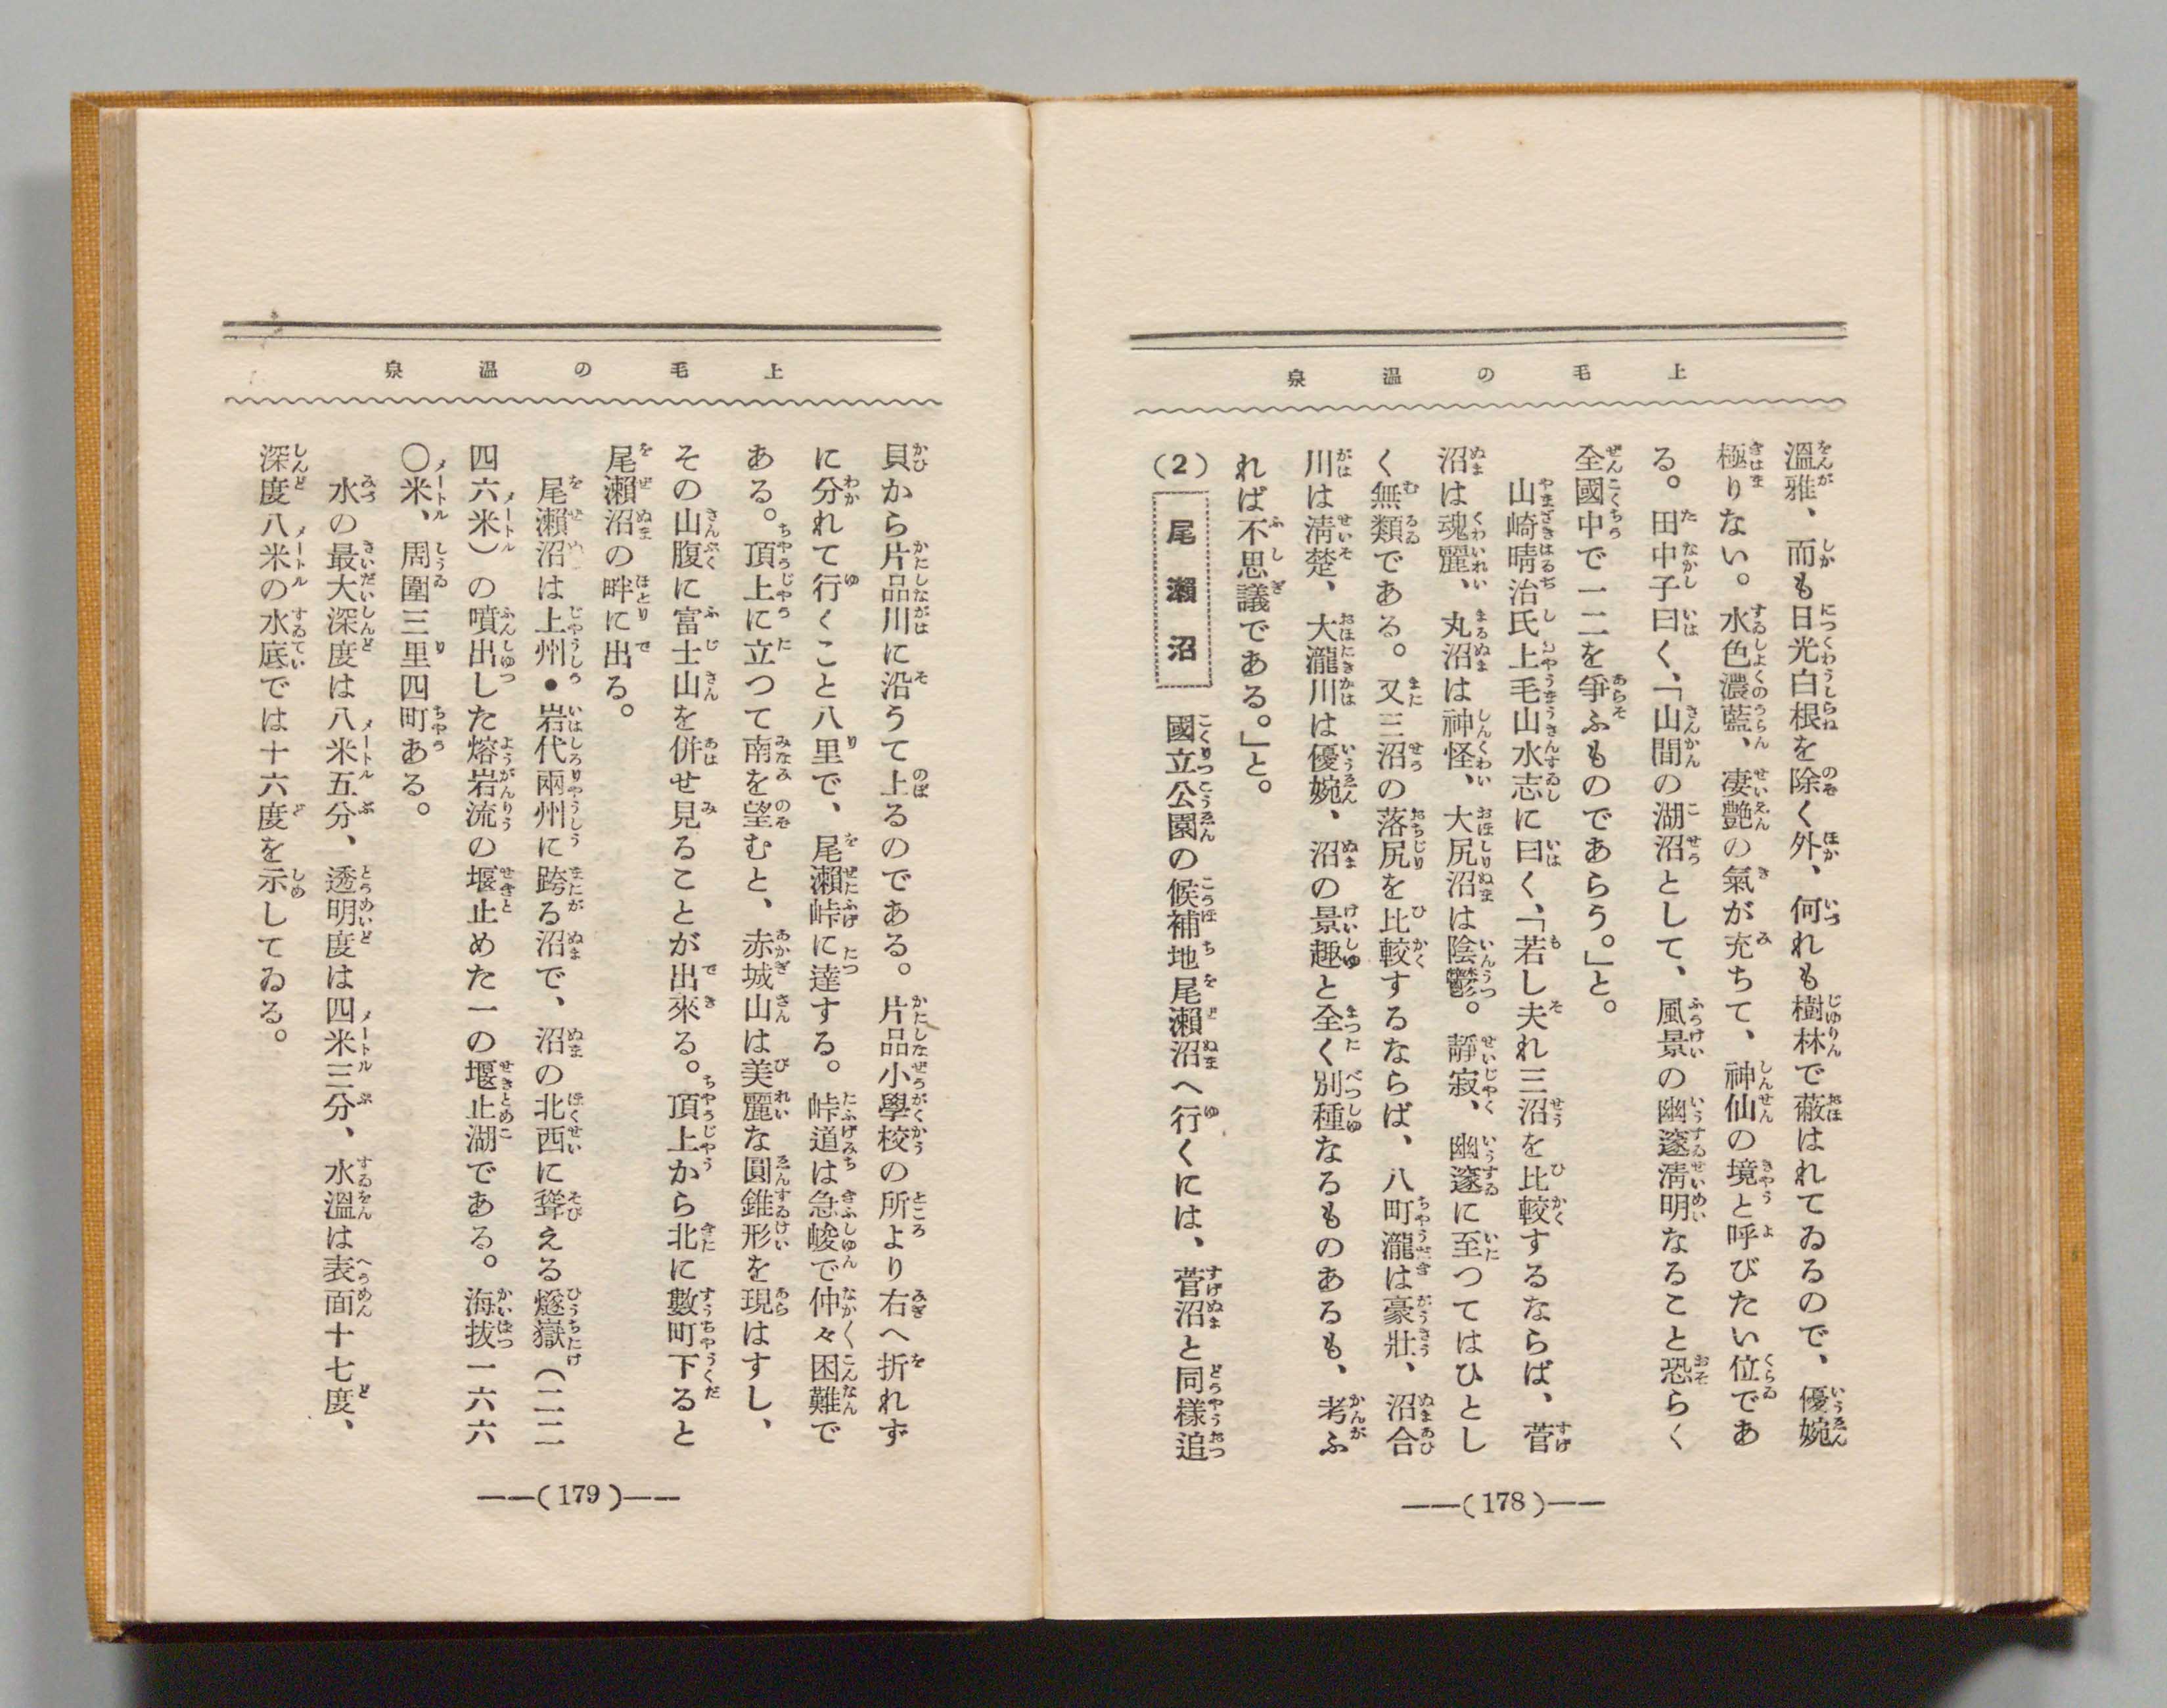 上毛の温泉
溫雅、而も日光白根を除く外、何れも樹林で蔽はれてゐるので、優婉
極りない。水色濃藍、凄艶の氣が充ちて、神仙の境と呼びたい位であ
る。田中子曰く、「山間の湖沼として、風景の幽邃淸明なること恐らく
全國中で一二を爭ふものであらう。」と。
山崎晴治氏上毛山水志に曰く、「若し夫れ三沼を比較するならば、菅
沼は魂麗、丸沼は神怪、大尻沼は陰鬱。靜寂、幽邃に至つてはひとし
く無類である。又三沼の落尻を比較するならば、八町瀧は豪壯、沼合
川は淸楚、大瀧川は優婉、沼の景趣と全く別種なるものあるも、考ふ
れば不思議である。」と。
(2) 尾瀨沼 國立公園の候補地尾瀨沼へ行くには、菅沼と同樣追
――(178)――
上毛の温泉
貝から片品川に沿うて上るのである。片品小學校の所より右へ折れず
に分れて行くこと八里で、尾瀨峠に達する。峠道は急峻で仲々困難で
ある。頂上に立つて南を望むと、赤城山は美麗な圓錐形を現はすし、
その山腹に富士山を併せ見ることが出來る。頂上から北に數町下ると
尾瀨沼の畔に出る。
尾瀨沼は上州・岩代兩州に跨る沼で、沼の北西に聳える燧嶽(二二
四六米)の噴出した熔岩流の堰止めた一の堰止湖である。海拔一六六
〇米、周圍三里四町ある。
水の最大深度は八米五分、透明度は四米三分、水溫は表面十七度、
深度八米の水底では十六度を示してゐる。
――(179)――